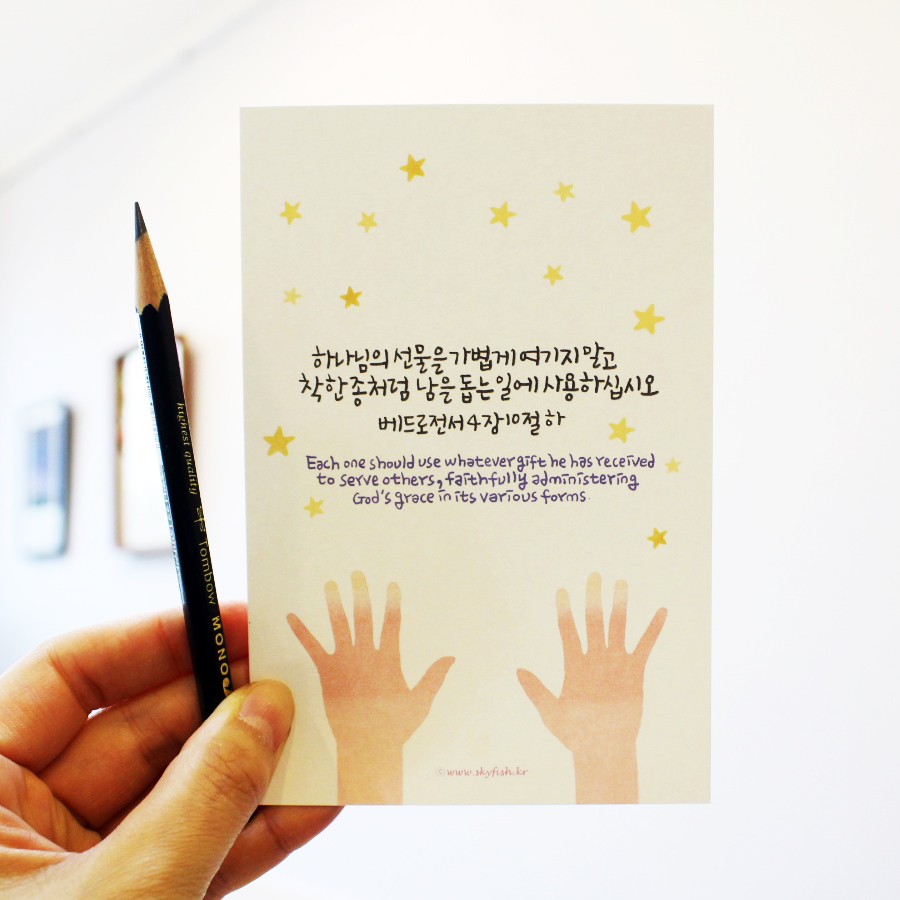 하나님의 선물을 가볍게 여기지 말고
착한 종처럼 남을 돕는 일에 사용하십시오
베드로전서 4장 10절 하
Each one should use whatever gift he has received
to serve others, faithfully administering
God's grace in its various forms.
©www.skyfish.kr
highest quality Tombow MONO